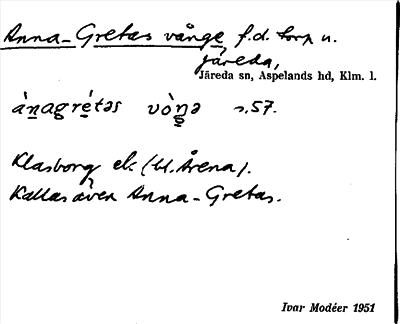 Anna-Gretas vånge, f.d. torp u.
Järeda,
Järeda sn, Aspelands hd, Klm. l.
ànagrétəs vòŋə s.57.
Klasborg ek. (bl. Årena).
Kallas även Anna-Gretas.
Ivar Modéer 1951